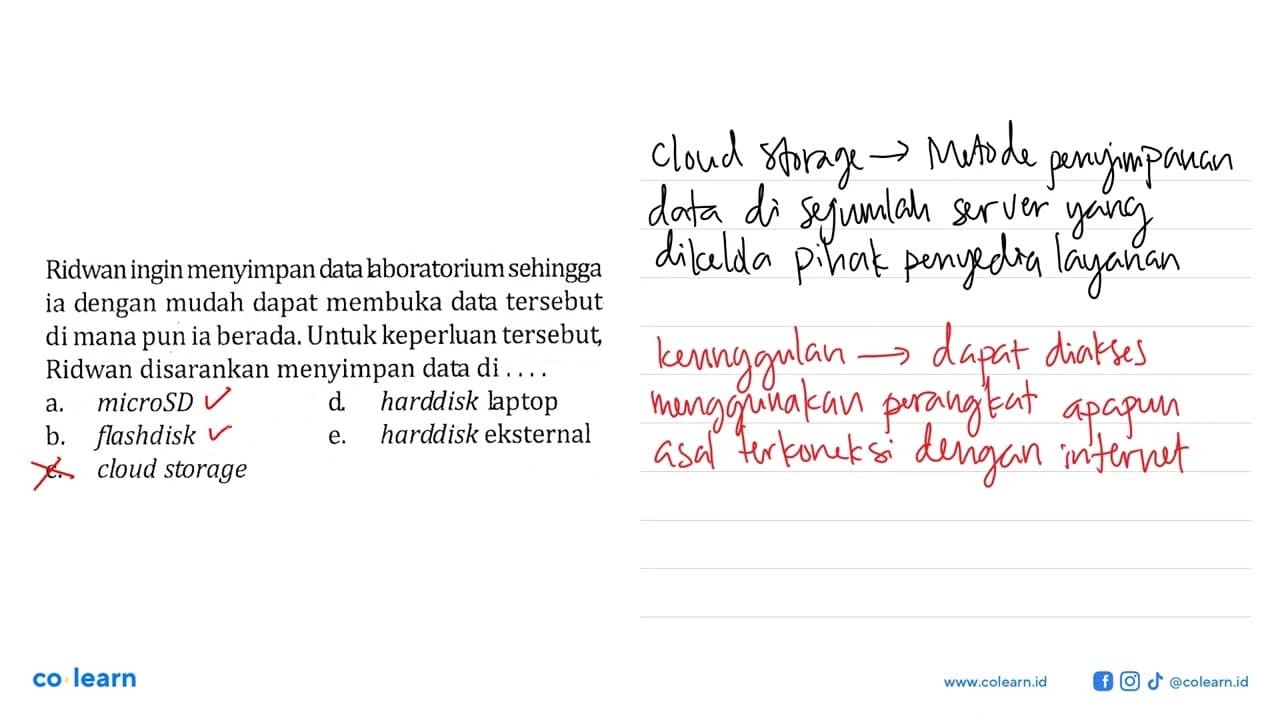 Ridwan ingin menyimpan data laboratorium sehingga
ia dengan mudah dapat membuka data tersebut
di mana pun ia berada. Untuk keperluan tersebut,
Ridwan disarankan menyimpan data di . . . .
a. microSD ✓ d. harddisk laptop
b. flashdisk ✓ e. harddisk eksternal
c. cloud storage
cloud storage → Metode penyimpanan
data di sejumlah server yang
dikelola pihak penyedia layanan
keunggulan → dapat diakses
menggunakan perangkat apapun
asal terkoneksi dengan internet
co learn
www.colearn.id @colearn.id